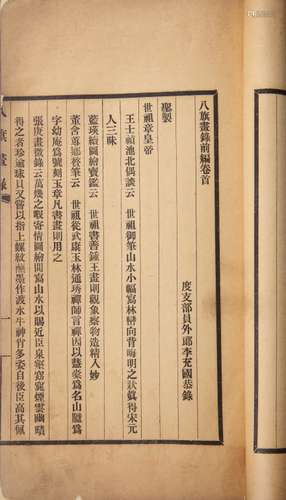 八旗畫錄前編卷首
度支部員外郎李充國恭錄
聖製
世祖章皇帝
王士禎池北偶談云 世祖御筆山水小幅寫林巒向背晦明之狀眞得宋元
人三昧
藍瑛續圖繪寶鑑云 世祖書善鍾王畫則觀象察物造精入妙
董含蓴鄉贅筆云 世祖從武康玉林通琇禪師言禪因以慧橐爲名山臞爲
字幼庵爲號刻玉章凡書畫則用之
張庚畫徵錄云萬幾之暇寄情圖繪間寫山水以賜近臣泉壑窈窕煙雲幽晴
得之者珍逾球貝又嘗以指上螺紋蘸墨作渡水牛神肖多姿自後臣高其佩
八旗畫錄